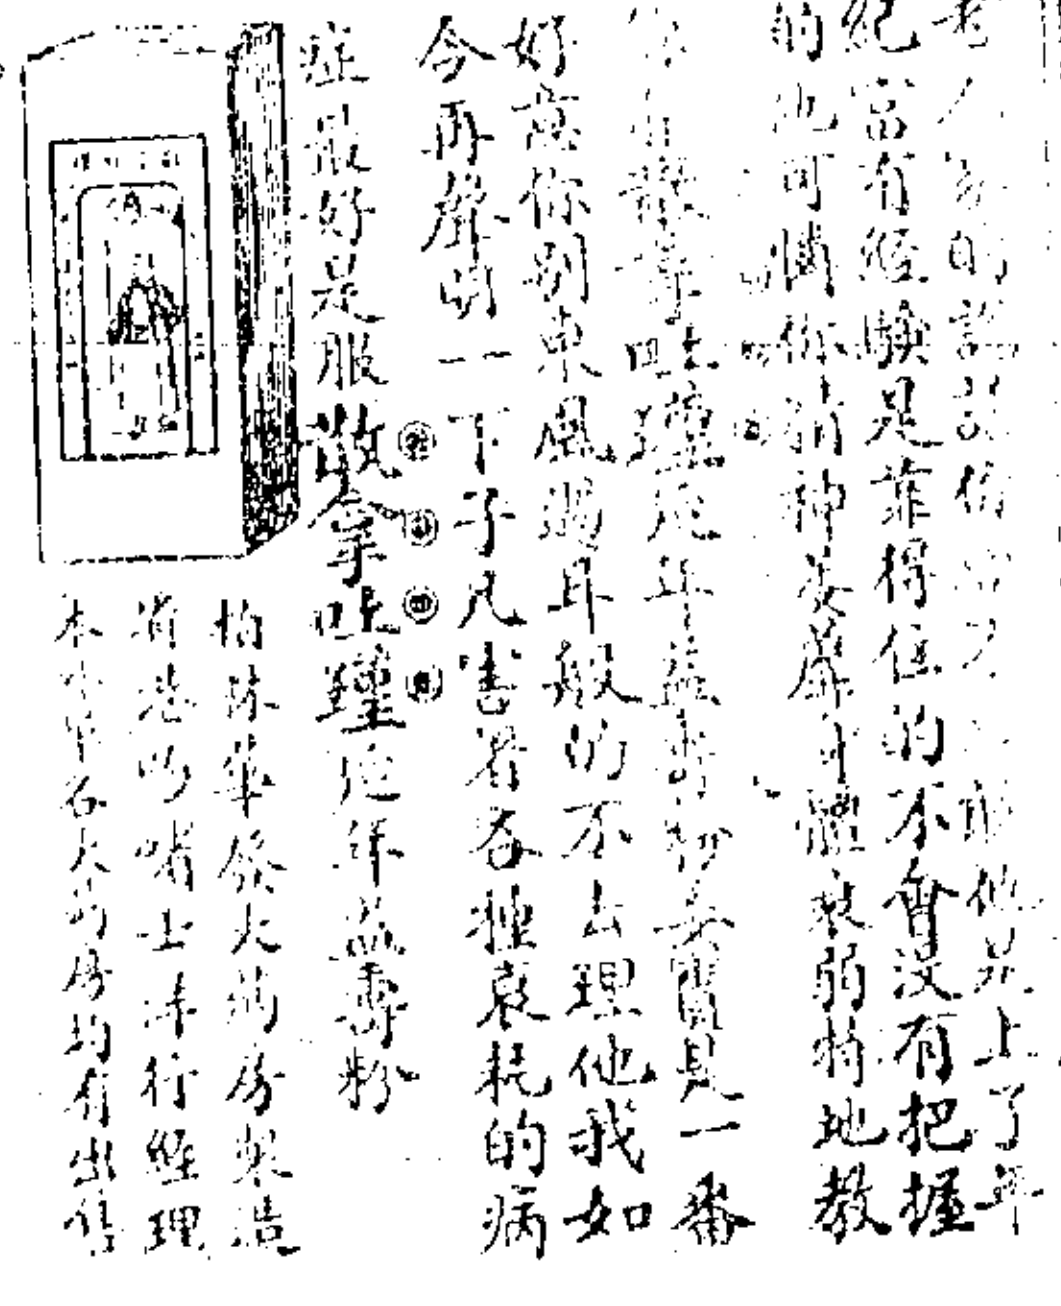 老人家的話說俗 他若上了年
紀富有經驗是靠得住的不會沒有把握
的也可憐你精神委靡身體衰弱特地教
散拿吐瑾延年益壽粉去實是一番
好意你別東風過耳般的不去理他我如
今再聲明一下子凡害着各種衰耗的病
症最好是服散拿吐瑾延年益壽粉
柏林華發大藥房製造
嗬士洋行經理
大藥房均有出售